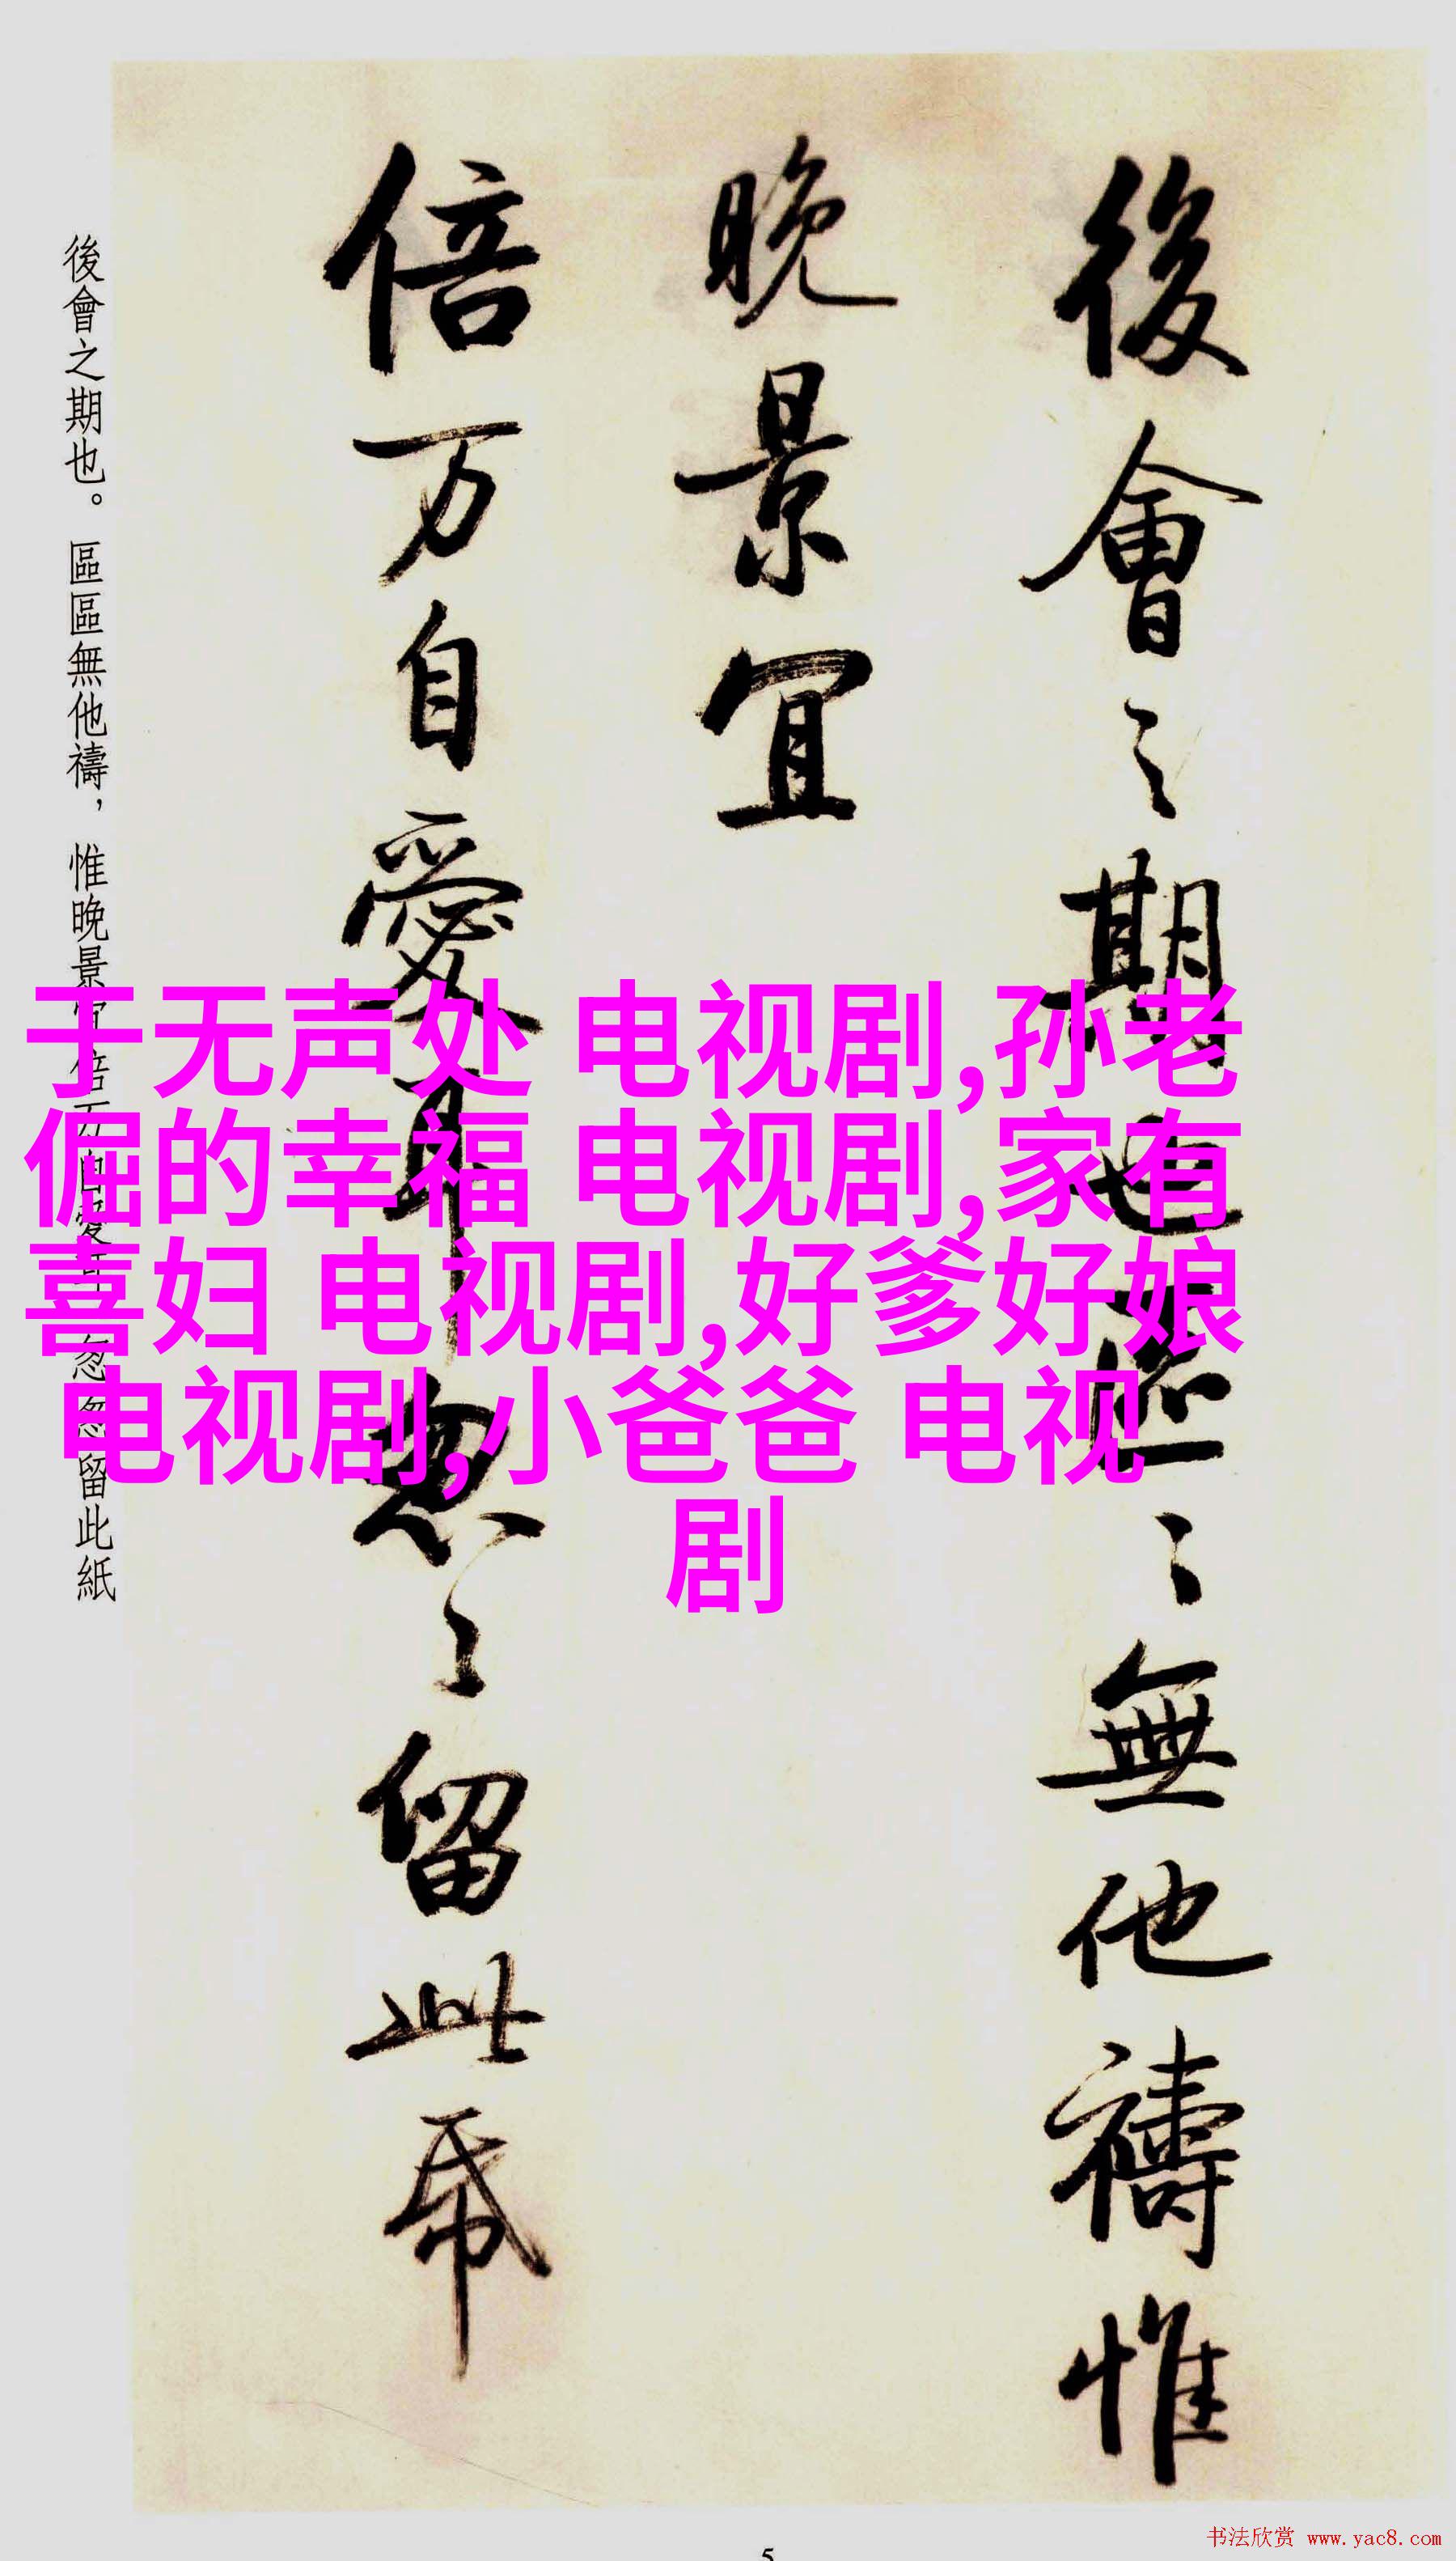 後會之期也區〻無他禱惟
晚景宜
倍万自愛耳怱〻留此帋
後會之期也。區區無他禱，惟晚景宜倍万自愛耳。怱怱留此紙
于无声处 电视剧,孙老
倔的幸福 电视剧,家有
喜妇 电视剧,好爹好娘
电视剧,小爸爸 电视
剧
5
书法欣赏 www.yac8.com